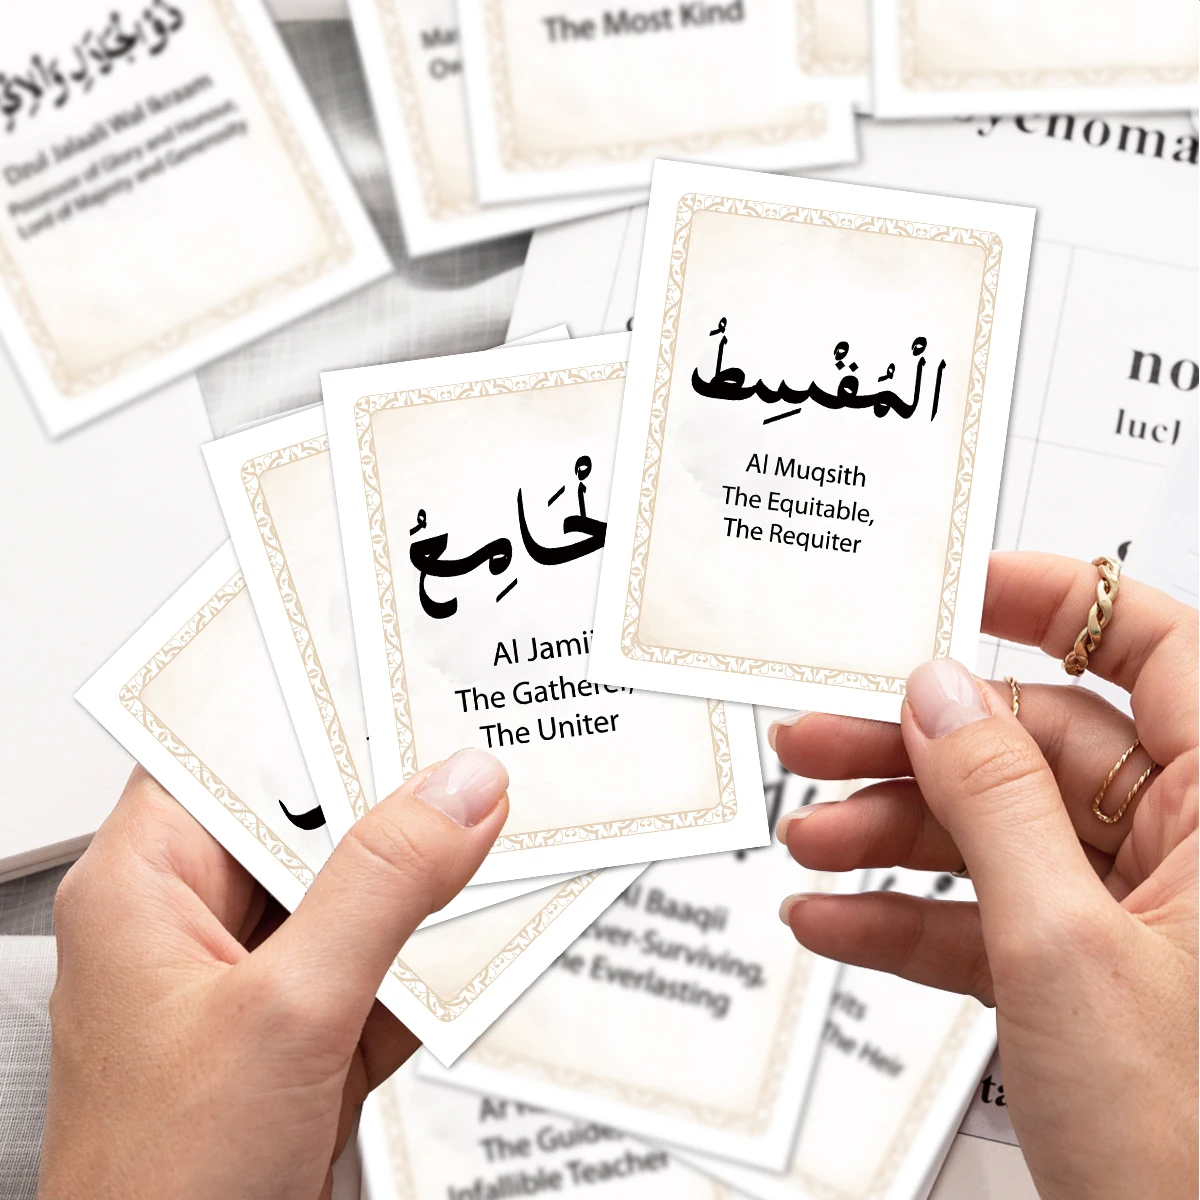 ذُو الْجَلَالِ وَالْإِكْ
Dzul Jalaali Wal Ikraam
Possessor of Glory and Honour,
Lord of Majesty and Generosity
The Most Kind
ychoma
no
luc
الْمُقْسِطُ
Al Muqsith
The Equitable,
The Requiter
لْجَامِعُ
Al Jamii
The Gatherer,
The Uniter
Al Baaqii
ver-Surviving,
he Everlasting
rits
The Heir
The Guide,
Infallible Teacher